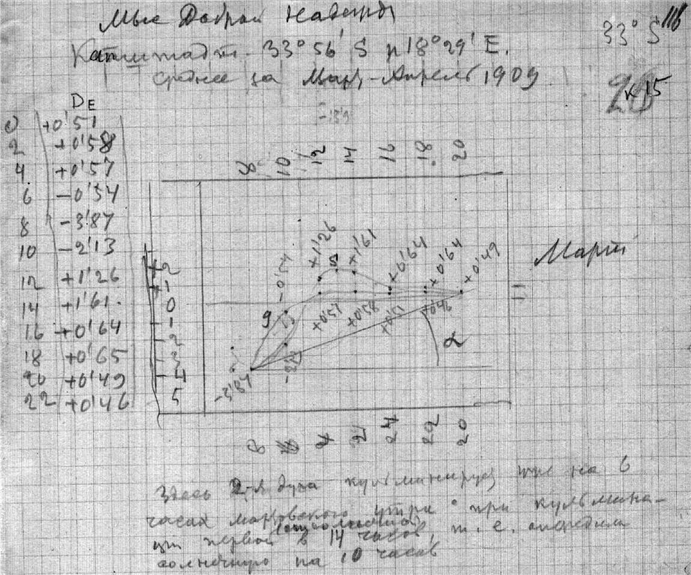 Мыс Доброй Надежды
33° S 116
Капштадт - 33° 56' S и 18° 29' E.
среднее за Март-Апрель 1909
к 15
D_E
0 +0'51
2 +0'58
4 +0'57
6 -0'54
8 -3'87
10 -2'13
12 +1'26
14 +1'61
16 +0'64
18 +0'65
20 +0'49
22 +0'46
8 10 12 14 16 18 20
+2
+1
0
-1
-2
-3
-4
5
-0'54 +1'26 +1'61 +0'64 +0'64 +0'49
9
+0'51 +0'58 +0'57 +0'46
-3'87
α
Март
8 24 22 20
Здесь 2-я дуга кульминирует на 6
часах утра при кульмина-
ции первой в 14 часов, т. е. опередила
солнечную на 10 часов